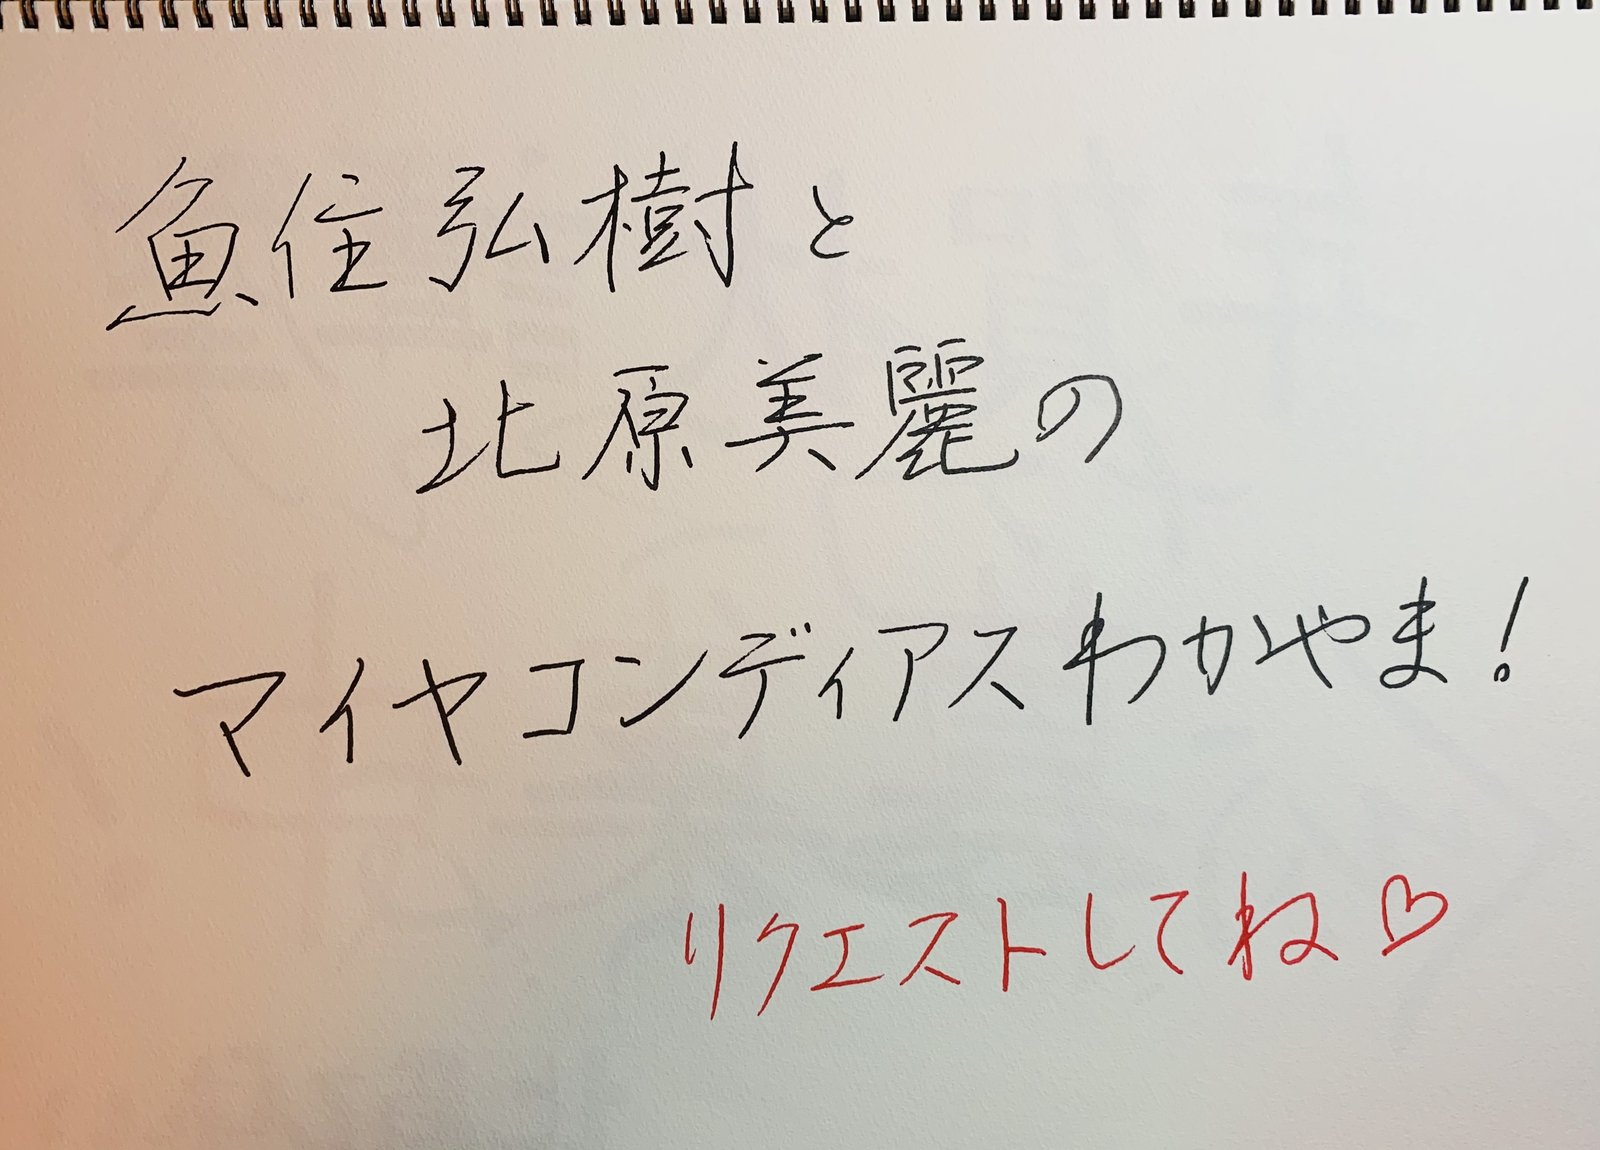 魚住弘樹と
北原美麗の
マイヤコンディアスわかやま!
リクエストしてね♡